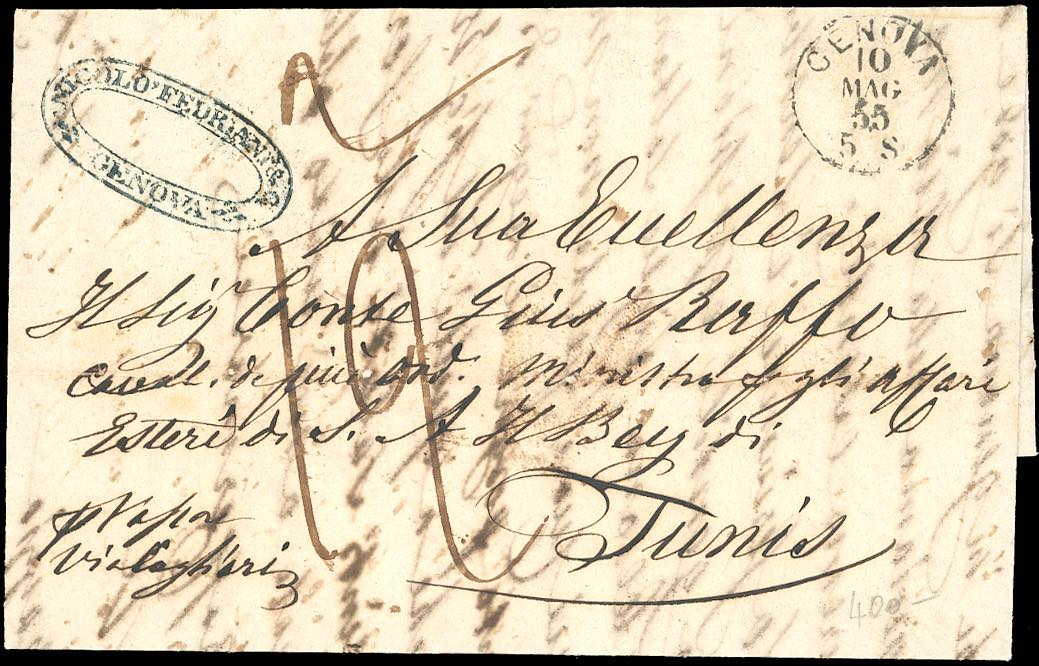 NICOLO' FEDRIANI
GENOVA
GENOVA
10
MAG
55
5 S
A Sua Eccellenza
Il Sig Conte Gius Raffo
Caval. di più Ord. Ministro p gli affari
Esteri di S. A Il Bey di
Tunis
p Vapore
Via Cagliari
400